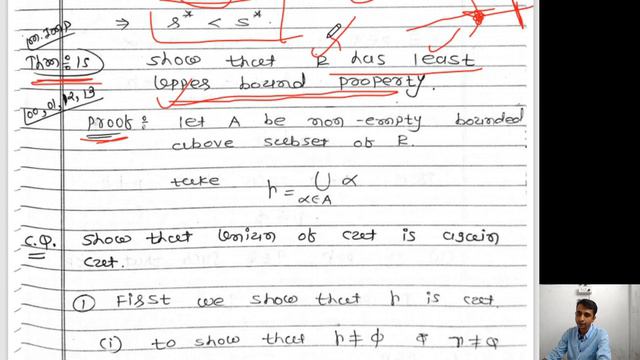 ⇒ r* < s*.
Imp. Imp
Thm: 15 Show that R has least
upper bound property.
00, 01, 12, 13
Proof: let A be non-empty bounded
above subset of R.
take r = ∪ α
α∈A
C.Q. Show that Union of cut is again
cut.
① First we show that r is cut.
(i) to show that r ≠ φ & r ≠ Q